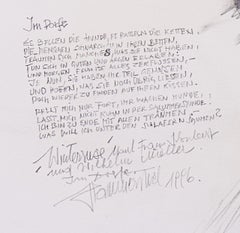 Im Dorfe
ES BELLEN DIE HUNDE, ES RASSELN DIE KETTEN,
DIE MENSCHEN SCHNARCHEN IN IHREN BETTEN,
TRÄUMEN SICH MANCHES, WAS SIE NICHT HABEN,
TUN SICH IM GUTEN UND ARGEN ERLABEN:
UND MORGEN FRÜH IST ALLES ZERFLOSSEN, -
JE NUN, SIE HABEN IHR TEIL GENOSSEN
UND HOFFEN, WAS SIE NOCH ÜBRIG LIESSEN,
DOCH WIEDER ZU FINDEN AUF IHREN KISSEN.
BELLT MICH NUR FORT, IHR WACHEN HUNDE,
LASST MICH NICHT RUHN IN DER SCHLUMMERSTUNDE!
ICH BIN ZU ENDE MIT ALLEN TRÄUMEN
WAS WILL ICH UNTER DEN SCHLÄFERN SÄUMEN?
"Winterreise" nach Franz Schubert
und Wilhelm Mueller.
Im Dorfe.
1996.